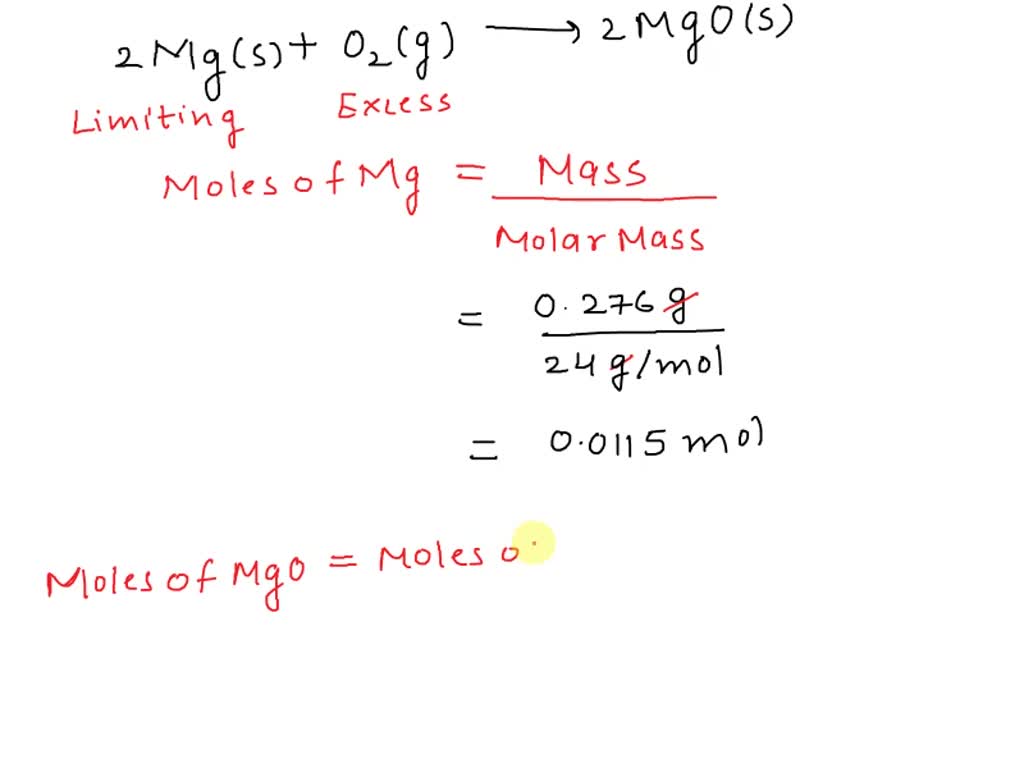 2Mg(s) + O₂(g) ⟶ 2MgO(s)
Limiting Excess
Moles of Mg = Mass
Molar Mass
= 0.276 g
24 g/mol
= 0.0115 mol
Moles of MgO = Moles o